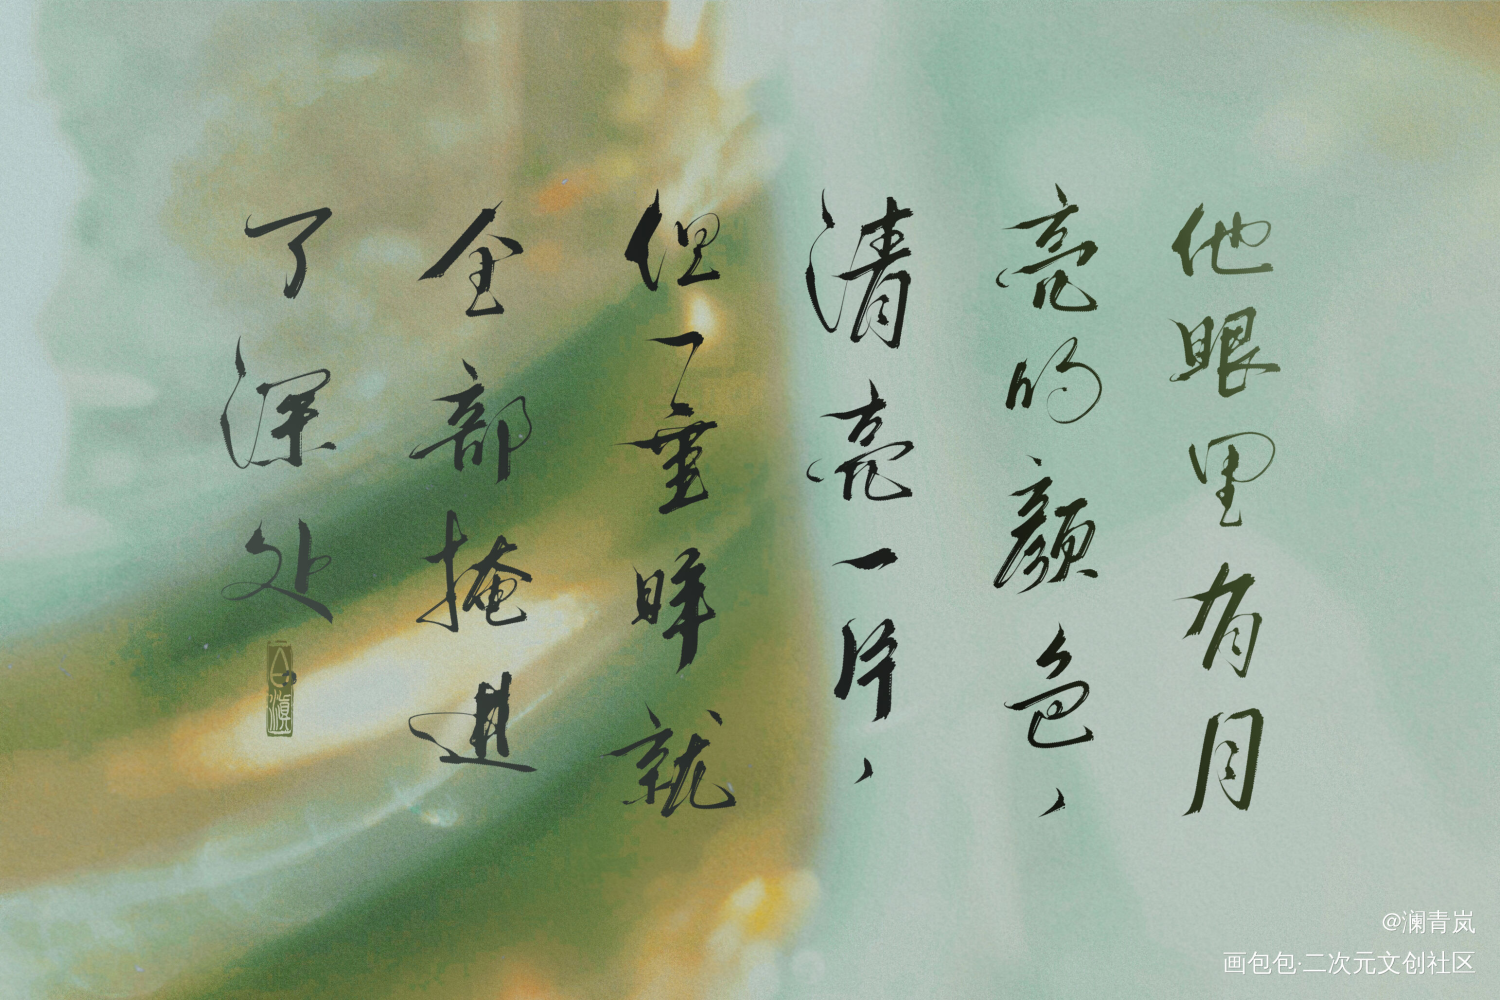 他眼里有月
亮的颜色，
清亮一片，
但一垂眸就
全部掩进
了深处
@澜青岚
画包包·二次元文创社区